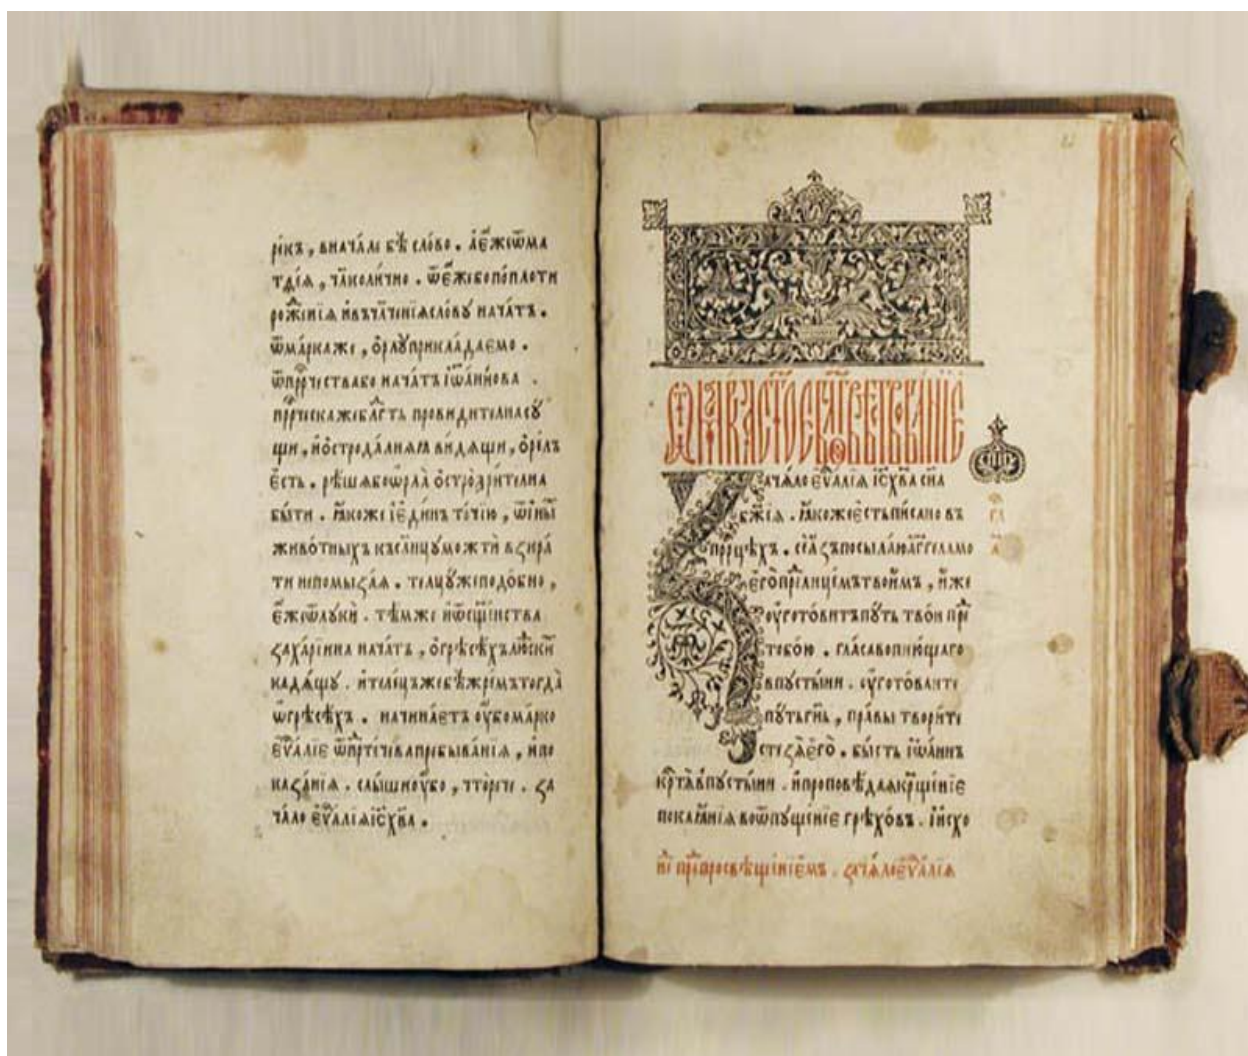 рекъ, вначалѣ бѣ сло́во. а҆є҆́жеѿма
тѳе́ѧ, чл҃коли́чно. ѿе҆́жебопопло́ти
роже́нїѧ ивъчл҃че́нїѧсло́вꙋ нача́тъ.
ѿма́ркаже, ѻ҆рлꙋ̀прикла́даемо.
ѿпррⷪ҇чествабо нача́тъ і҆ѡа́ннова.
прⷪ҇рческажебл҃гть провидителнасꙋ
щи, ио҆строда́лнѧѧ ви́дѧщи, ѻ҆ре́лъ
є҆́сть. рѣ́шѧбоѡ҆рла̀ ѻ҆строзри́телна
бы́ти. ꙗ҆́коже і҆є҆ди́нъ то́чїю, ѿи҆ны́
живо́тныхъ късл҃нцꙋмо́жтъ взира́
ти непомыза́ѧ. телцꙋ́жеподо́бно,
є҆́жеѿлꙋкѝ. тѣ́мже иѿсщ҃е́нства
заха́рїина нача́тъ, ѻ҆грѣсѣ́хълюⷣски
кадѧ́щꙋ. ителе́цъжебѣ̀жре́мътогда̀
ѿгрѣсѣ́хъ. начина́етъ ᲂу҆́бома́рко
є҆ѵⷢ҇а́лїе ѿпрⷣте́чевапребыва́нїѧ, ипо
каза́нїѧ. слы́шиᲂу҆́бо, что̀рече. за
ча́ло є҆ѵⷢ҇а́лїѧі҆с҃х҃ва.
за
ча́ло є҆ѵⷢ҇а́лїѧ і҆с҃х҃ва сн҃а
бж҃їѧ. ꙗ҆́кожее҆́стьпи́сано въ
прⷪ҇рцѣхъ. сѐ а҆́зъпосыла́юа҆́гг҃ела мо
его̀преⷣлице́мътвои́мъ, и҆́же
ᲂу҆гото́витъпꙋ́ть тво́и преⷣ
тобо́ю. гла́съвопїю́щаго
впꙋсты́ни. ᲂу҆гото́ваите
пꙋ́тьгн҃ь, пра́вы твори́те
стезѧ̀є҆го̀. бы́сть і҆ѡа́ннъ
крⷭ҇тѧ́впꙋсты́ни. ипроповѣ́даѧкрⷳ҇ще́нїе
покаѧ́нїѧ вою҆пꙋще́нїе грѣхо́въ. иисхо
неⷣ преⷣпросвѣще́нїе́мъ. зача́лоє҆ѵⷢ҇а́лїѧ